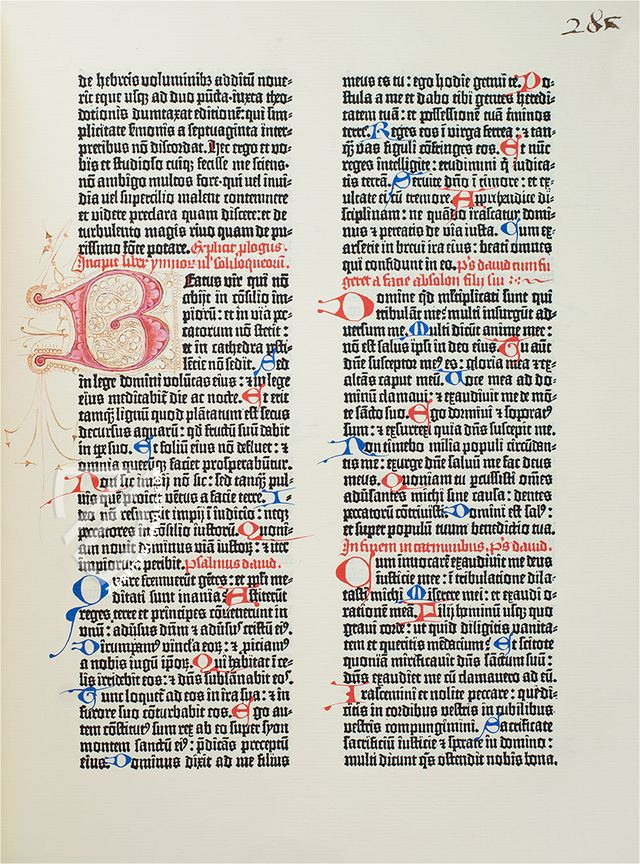 285
de hebreis voluminibꝫ additū noue-
rit eque usqꝫ ad duo pūcta·iuxta theo-
dotionis dumtaxat editionē:qui sim-
plicitate sermonis a septuaginta inter-
pretibus nō discordat. Hec ergo et vo-
bis et studioso cuiqꝫ fecisse me sciens·
nō ambigo multos fore·qui vel invi-
dia vel supercilio malent contemnere
et videre preclara quam discere:et de
turbulento magis rivo quam de pu-
rissimo fōte potare. Explicit ꝓlogus.
Incipit liber ymnoꝝ vel soliloquioꝝ.
Beatus vir qui nō
abijt in cōsilio im-
pioꝝ: et in via pec-
catorum nō stetit:
et in cathedra pesti-
lētie nō sedit. Sed
in lege domini volūtas eius: et in lege
eius meditabit̄ die ac nocte. Et erit
tamqꝫ lignū quod plātatum est secus
decursus aquarū: qđ fructū suū dabit
in tꝑe suo. Et foliū eius nō defluet: et
omnia quecūqꝫ faciet prosperabūtur.
Non sic impij nō sic: sed tanqꝫ pul-
vis quē proicit vētus a facie terre. I-
deo nō resurgūt impij ī iudicio: neqꝫ
peccatores in cōsilio iustorū. Quoni-
am novit dominus viā iustoꝝ: et iter
impiorum peribit. Psalmus david.
Quare fremuerūt gētes: et ppli me-
ditati sunt inania? Astiterūt
reges terre et principes cōvenerunt in
unū: adūsus dnm̄ et adūsus cristū eiꝰ.
Dirumpamꝰ vincla eoꝝ: et ꝓiciamꝰ
a nobis iugū ipoꝝ. Qui habitat ī ce-
lis irridebit eos: et dns̄ subsānabit eos.
Tunc loquet̄ ad eos in ira sua: et in
furore suo cōturbabit eos. Ego au-
tem cōstitutꝰ sum rex ab eo super syon
montem sanctū eiꝰ: p̄dicās preceptū
eius. Dominus dixit ad me filius
meus es tu: ego hodie genui te. Po-
stula a me et dabo tibi gentes heredi-
tatem tuā: et possessionē tuā t̄minos
terre. Reges eos ī virga ferrea: et tan-
qꝫ vas figuli cōfringes eos. Et nūc
reges intelligite: erudimini qͥ iudica-
tis terrā. Servite dn̄o ī timore: et ex-
ultate ei cū tremore. Apprehendite di-
sciplinam: ne quādo irascatur domi-
nus et pereatis de via iusta. Cum ex-
arserit in brevi ira eius: beati omnes
qui confidunt in eo. p̄s david cum fu-
geret a facie absolon filij sui
Domine qͥd multiplicati sunt qui
tribulāt me? multi insurgūt ad-
versum me. Multi dicūt anime mee:
nō est salus ipsi in deo eius. Tu autē
dn̄e susceptor meꝰ es: gloria mea et ex-
altās caput meū. Voce mea ad do-
minū clamavi: et exaudivit me de mō-
te sācto suo. Ego dormivi et soporatꝰ
sum: et exsurrexi quia dn̄s suscepit me.
Non timebo milia populi circūdan-
tis me: exurge dn̄e salvū me fac deus
meus. Quoniam tu percussisti om̄es
adūsantes michi sine causa: dentes
peccatorū cōtrivisti. Domini est salꝰ:
et super populū tuum benedictio tua.
In finem in carminibus. p̄s david.
Cum invocarē exaudivit me deus
iusticie mee: ī tribulatione dila-
tasti michi. Miserere mei: et exaudi o-
rationē meā. Filij hominū usqꝫ quo
gravi corde: ut quid diligitis vanita-
tem et queritis mēdacium? Et scitote
quoniā mirificavit dn̄s sanctum suū:
dn̄s exaudiet me cū clamavero ad eū.
Irascemini et nolite peccare: que di-
citis in cordibus vestris in cubilibus
vestris compungimini. Sacrificate
sacrificiū iusticie et sperate in domino:
multi dicunt qͥs ostendit nobis bona.